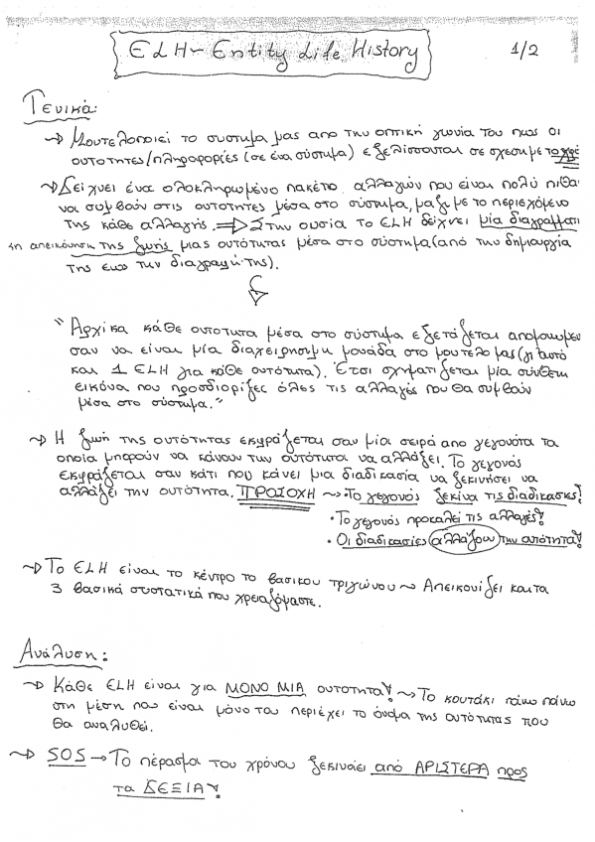 ELH - Entity Life History
1/2
Γενικά:
→ Μοντελοποιεί το σύστημα μας από την οπτική γωνία του πως οι
οντότητες/πληροφορίες (σε ένα σύστημα) εξελίσσονται σε σχέση με το χρό
→ Δείχνει ένα ολοκληρωμένο πακέτο αλλαγών που είναι πολύ πιθα-
να συμβούν στις οντότητες μέσα στο σύστημα, μαζί με το περιεχόμενο
της κάθε αλλαγής. ⇒ Στην ουσία το ELH δείχνει μία διαγραμματι
κη απεικόνιση της ζωής μιας οντότητας μέσα στο σύστημα (από την δημιουργία
της εως την διαγραφή της).
"Αρχικα κάθε οντοτητα μέσα στο σύστημα εξετάζεται απομονωμεν
σαν να είναι μία διαχειρησιμη μονάδα στο μοντελο μας (γι αυτό
και 1 ELH για κάθε οντότητα). Ετσι σχηματίζεται μία σύνθετη
εικόνα που προσδιορίζει όλες τις αλλαγές που θα συμβούν
μέσα στο σύστημα."
→ Η ζωή της οντότητας εκφράζεται σαν μία σειρά απο γεγονότα τα
οποία μπορούν να κάνουν την οντότητα να αλλάξει. Το γεγονός
εκφράζεται σαν κάτι που κάνει μια διαδικασία να ξεκινήσει να
αλλάζει την οντότητα. ΠΡΟΣΟΧΗ → • Το γεγονός ξεκινα τις διαδικασίες!
• Το γεγονός προκαλεί τις αλλαγές!
• Οι διαδικασίες αλλάζουν την οντότητα!
→ Το ELH είναι το κέντρο το βασικου τριγώνου ~ Απεικονίζει και τα
3 βασικά συστατικά που χρειαζόμαστε.
Ανάλυση:
→ Κάθε ELH είναι για ΜΟΝΟ ΜΙΑ οντοτητα! → Το κουτάκι πάνω πάνω
στη μέση που είναι μόνο του περιέχει το όνομα της οντότητας που
θα αναλυθεί.
→ SOS → Το πέρασμα του χρόνου ξεκινάει από ΑΡΙΣΤΕΡΑ προς
τα ΔΕΞΙΑ!